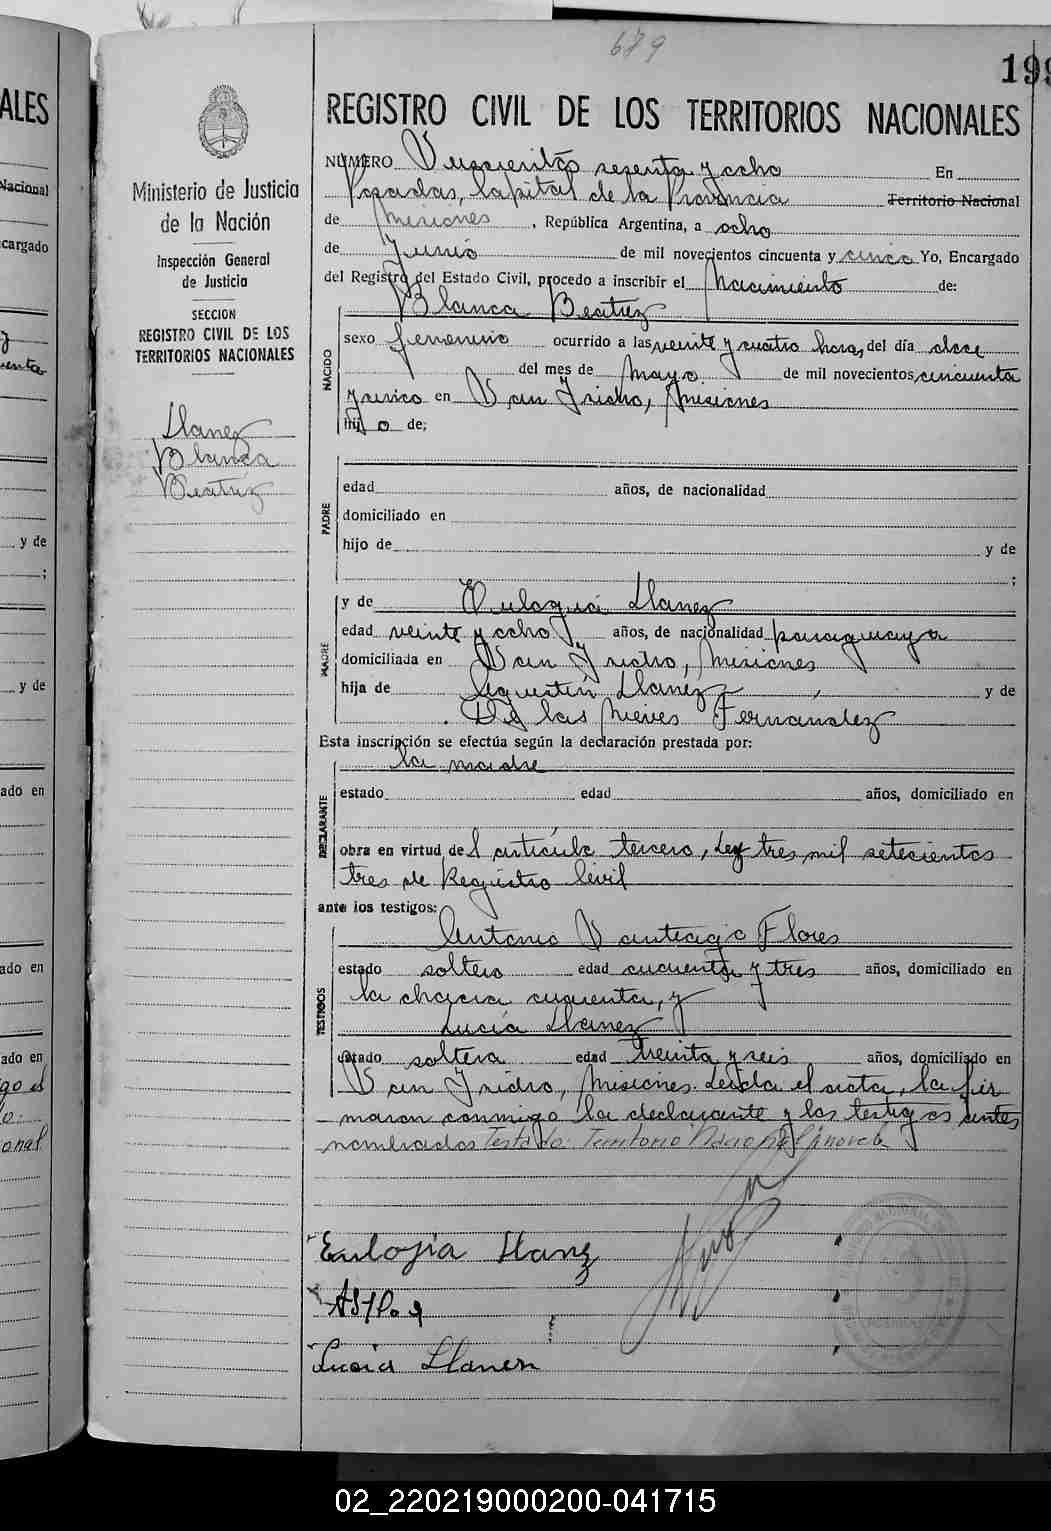 689
199
ALES
REGISTRO CIVIL DE LOS TERRITORIOS NACIONALES
Ministerio de Justicia
de la Nación
Inspección General
de Justicia
SECCION
REGISTRO CIVIL DE LOS
TERRITORIOS NACIONALES
Llanez
Blanca
Beatriz
NÚMERO sesenta y ocho En
Posadas, Capital de la Provincia Territorio Nacional
de Misiones, República Argentina, a ocho
de Junio de mil novecientos cincuenta y cinco Yo, Encargado
del Registro del Estado Civil, procedo a inscribir el Nacimiento de:
Blanca Beatriz
NACIDO
sexo femenino ocurrido a las veinte y cuatro horas, del día doce
del mes de mayo de mil novecientos, cincuenta
y cinco en San Isidro, Misiones
hijo de;
PADRE
edad años, de nacionalidad
domiciliado en
hijo de y de
;
MADRE
y de Eulogia Llanez
edad veinte y ocho años, de nacionalidad paraguaya
domiciliada en San Isidro, Misiones
hija de Agustín Llanez, y de
De las Nieves Fernandez
Esta inscripción se efectúa según la declaración prestada por:
DECLARANTE
la madre
estado edad años, domiciliado en
obra en virtud del artículo tercero, Ley tres mil setecientos
tres de Registro Civil
ante los testigos:
TESTIGOS
Antonio Santiago Flores
estado soltero edad cuarenta y tres años, domiciliado en
la chacra cuarenta, y
Lucía Llanez
estado soltera edad treinta y seis años, domiciliado en
San Isidro, Misiones. Leída el acta, la fir
maron conmigo la declarante y los testigos antes
nombrados Testado: Territorio Nacional
Eulogia Llanez
Lucia Llanez
Nacional
ncargado
y de
;
y de
ado en
ado en
ado en
onal
02_220219000200-041715